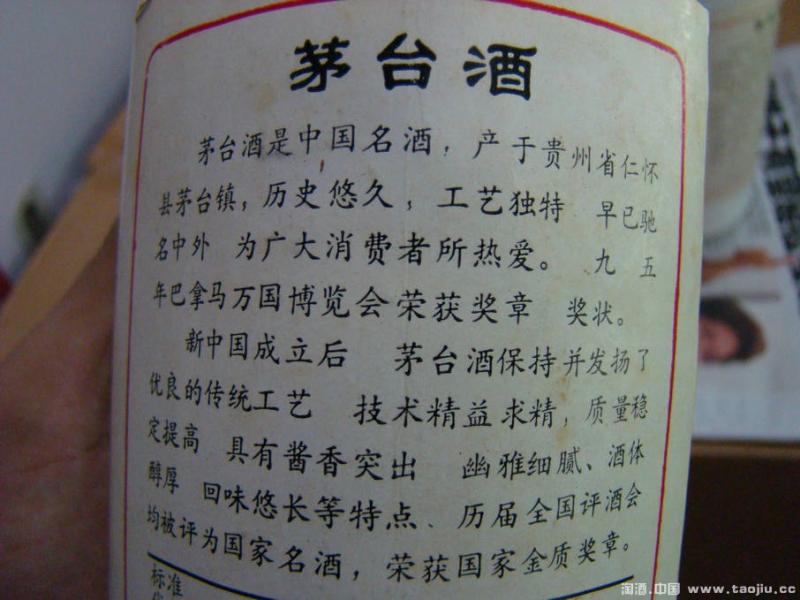 茅台酒
茅台酒是中国名酒，产于贵州省仁怀
县茅台镇，历史悠久，工艺独特 早已驰
名中外 为广大消费者所热爱。 九 五
年巴拿马万国博览会荣获奖章 奖状。
新中国成立后 茅台酒保持并发扬了
优良的传统工艺 技术精益求精，质量稳
定提高 具有酱香突出 幽雅细腻、酒体
醇厚 回味悠长等特点、历届全国评酒会
均被评为国家名酒，荣获国家金质奖章。
标准
淘酒.中国 www.taojiu.cc